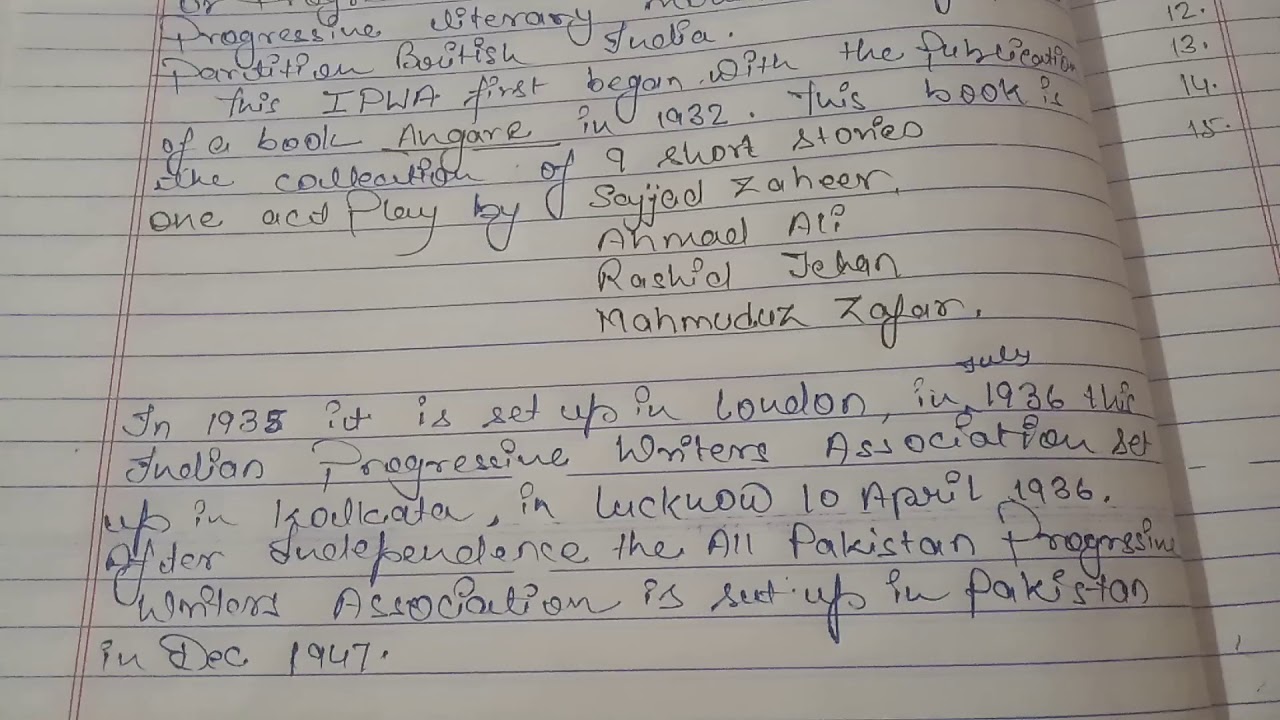 Progressive literary
Paritition British India.
This IPWA first began with the publication
of a book Angare in 1932. This book is
the collection of 9 short stories
one act Play by Sajjad Zaheer,
Ahmad Ali
Rashid Jehan
Mahmuduz Zafar.
July
In 1935 it is set up in London, in 1936 this
Indian Progressive Writers Association set
up in Kolkata, in Lucknow 10 April 1936.
After Independence the All Pakistan Progressive
Writers Association is set up in Pakistan
in Dec 1947.
12.
13.
14.
15.